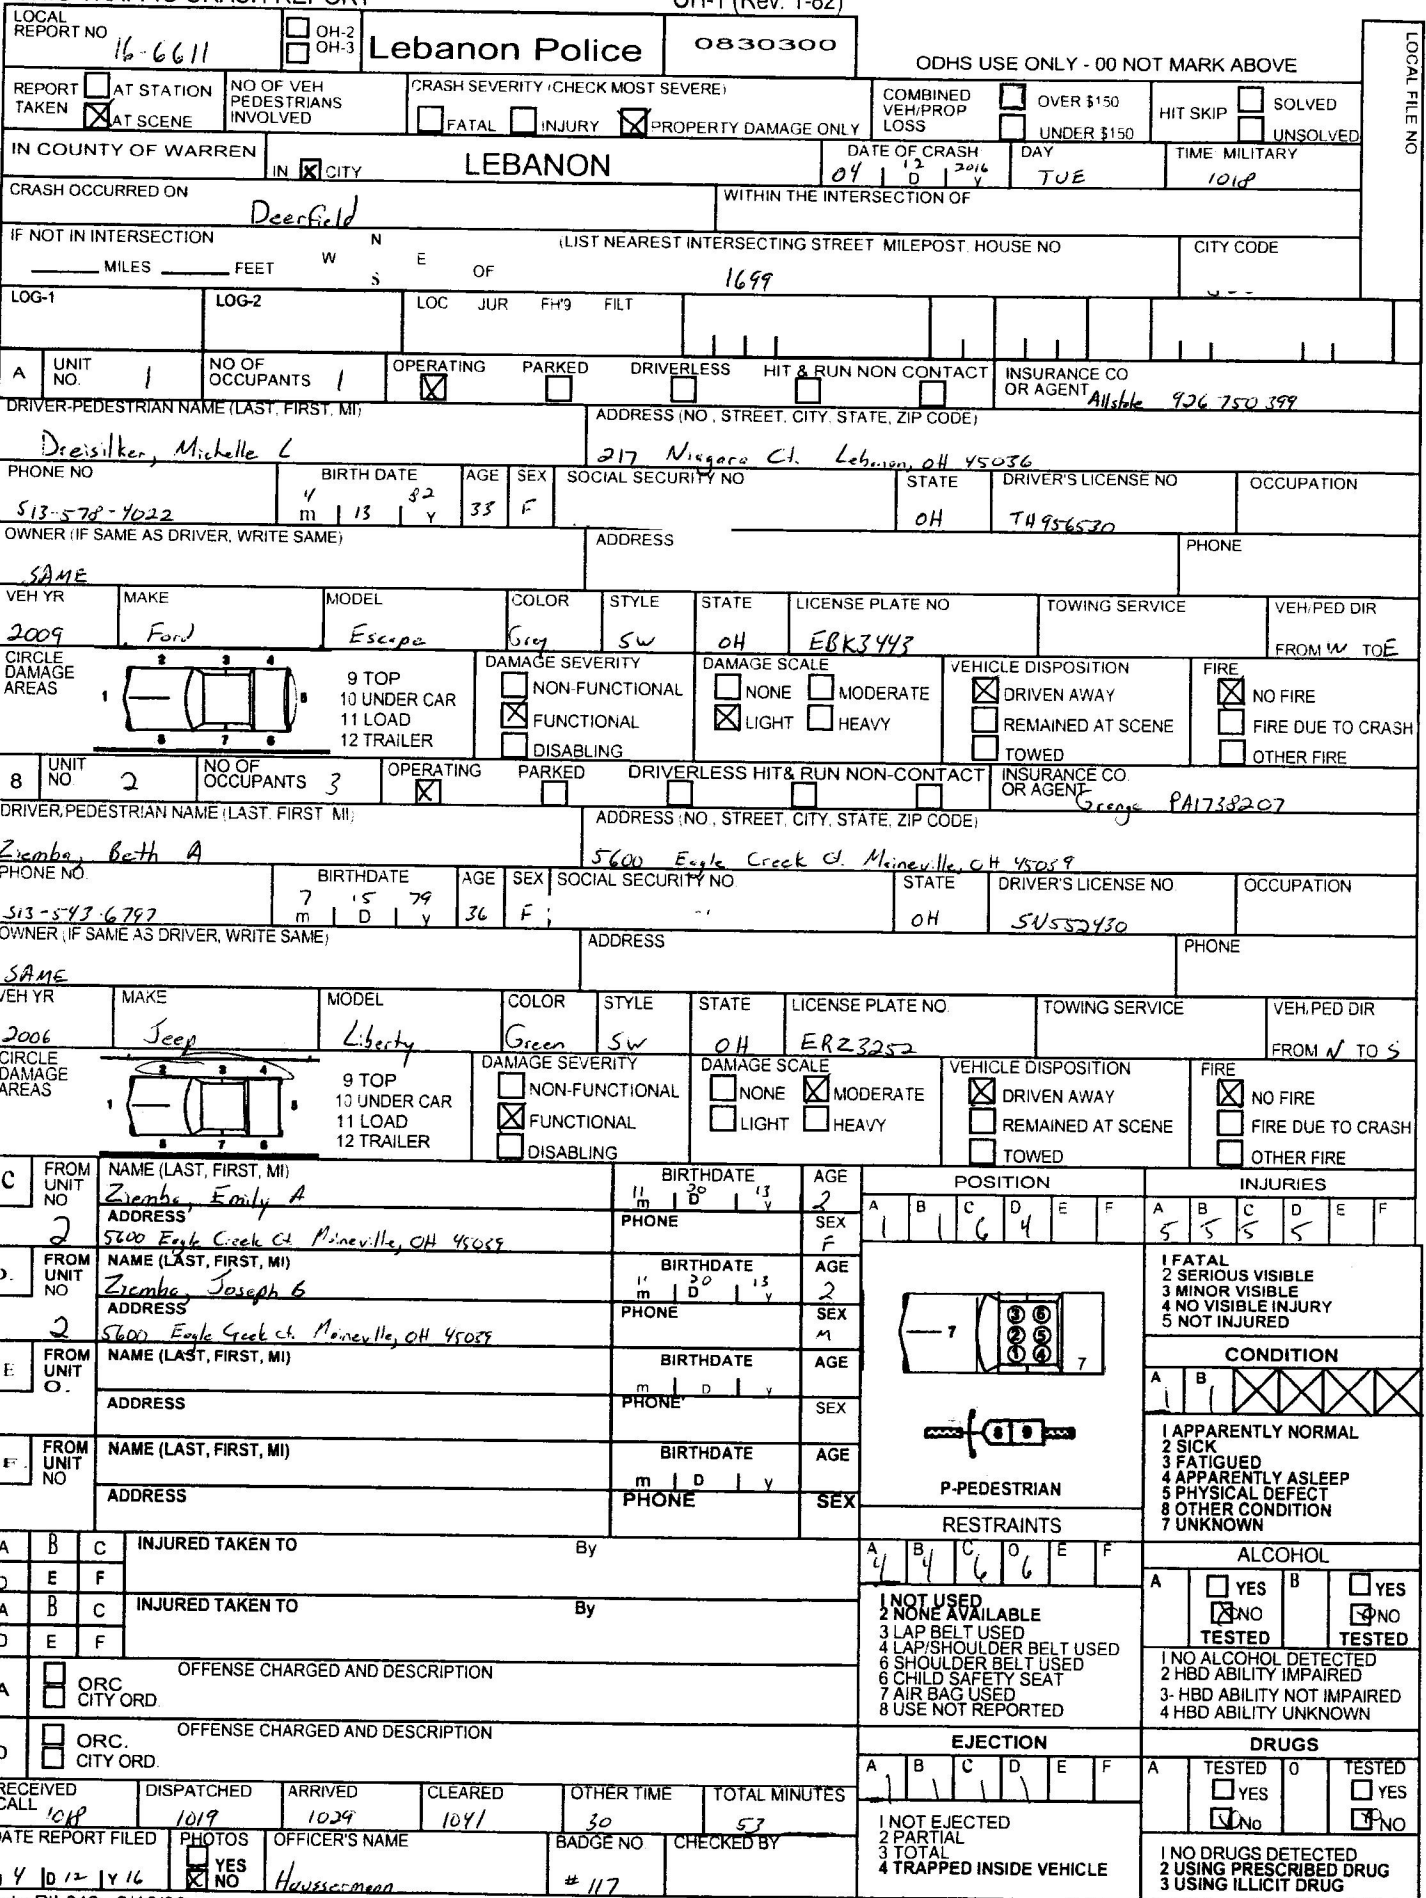 OH-1 (Rev. 1-82)
LOCAL REPORT NO 16-6611
OH-2
OH-3
Lebanon Police
0830300
ODHS USE ONLY - 00 NOT MARK ABOVE
LOCAL FILE NO
REPORT TAKEN AT STATION AT SCENE
NO OF VEH PEDESTRIANS INVOLVED
CRASH SEVERITY (CHECK MOST SEVERE)
FATAL INJURY PROPERTY DAMAGE ONLY
COMBINED VEH/PROP LOSS OVER $150 UNDER $150
HIT SKIP SOLVED UNSOLVED
IN COUNTY OF WARREN IN X CITY LEBANON
DATE OF CRASH 04 12 D 2016 Y
DAY TUE
TIME MILITARY 1018
CRASH OCCURRED ON Deerfield
WITHIN THE INTERSECTION OF
IF NOT IN INTERSECTION
MILES FEET N W E S OF
(LIST NEAREST INTERSECTING STREET MILEPOST. HOUSE NO 1699
CITY CODE
LOG-1 LOG-2 LOC JUR FH'9 FILT
A UNIT NO. 1 NO OF OCCUPANTS 1
OPERATING PARKED DRIVERLESS HIT & RUN NON CONTACT
INSURANCE CO OR AGENT Allstate 926 750 399
DRIVER-PEDESTRIAN NAME (LAST, FIRST, MI) Dreisilker, Michelle L
ADDRESS (NO, STREET, CITY, STATE, ZIP CODE) 217 Niagara Ct. Lebanon, OH 45036
PHONE NO 513-578-4022
BIRTH DATE 4 m 13 82 Y
AGE 33 SEX F SOCIAL SECURITY NO
STATE OH DRIVER'S LICENSE NO TH956530 OCCUPATION
OWNER (IF SAME AS DRIVER, WRITE SAME) SAME
ADDRESS PHONE
VEH YR 2009 MAKE Ford MODEL Escape COLOR Grey STYLE SW STATE OH LICENSE PLATE NO EBK3443 TOWING SERVICE VEH/PED DIR FROM W TO E
CIRCLE DAMAGE AREAS
1 2 3 4 5 8 7 6
9 TOP
10 UNDER CAR
11 LOAD
12 TRAILER
DAMAGE SEVERITY NON-FUNCTIONAL FUNCTIONAL DISABLING
DAMAGE SCALE NONE MODERATE LIGHT HEAVY
VEHICLE DISPOSITION DRIVEN AWAY REMAINED AT SCENE TOWED
FIRE NO FIRE FIRE DUE TO CRASH OTHER FIRE
8 UNIT NO 2 NO OF OCCUPANTS 3
OPERATING PARKED DRIVERLESS HIT& RUN NON-CONTACT
INSURANCE CO. OR AGENT Grange PA1738207
DRIVER,PEDESTRIAN NAME (LAST. FIRST MI) Ziemba, Beth A
ADDRESS (NO, STREET, CITY, STATE, ZIP CODE) 5600 Eagle Creek Ct. Maineville, OH 45039
PHONE NO. 513-543-6797
BIRTHDATE 7 m 15 D 79 y
AGE 36 SEX F SOCIAL SECURITY NO
STATE OH DRIVER'S LICENSE NO SN552430 OCCUPATION
OWNER (IF SAME AS DRIVER, WRITE SAME) SAME
ADDRESS PHONE
VEH YR 2006 MAKE Jeep MODEL Liberty COLOR Green STYLE SW STATE OH LICENSE PLATE NO. ERZ3252 TOWING SERVICE VEH,PED DIR FROM N TO S
CIRCLE DAMAGE AREAS
1 2 3 4 5 8 7 6
9 TOP
10 UNDER CAR
11 LOAD
12 TRAILER
DAMAGE SEVERITY NON-FUNCTIONAL FUNCTIONAL DISABLING
DAMAGE SCALE NONE MODERATE LIGHT HEAVY
VEHICLE DISPOSITION DRIVEN AWAY REMAINED AT SCENE TOWED
FIRE NO FIRE FIRE DUE TO CRASH OTHER FIRE
C FROM UNIT NO 2 NAME (LAST, FIRST, MI) Ziemba, Emily A
BIRTHDATE 11 m 20 D 13 y AGE 2
ADDRESS 5600 Eagle Creek Ct. Maineville, OH 45039 PHONE SEX F
D. FROM UNIT NO 2 NAME (LAST, FIRST, MI) Ziemba, Joseph G
BIRTHDATE 11 m 20 D 13 y AGE 2
ADDRESS 5600 Eagle Creek Ct. Maineville, OH 45039 PHONE SEX M
E FROM UNIT O. NAME (LAST, FIRST, MI) BIRTHDATE m D y AGE
ADDRESS PHONE SEX
F. FROM UNIT NO NAME (LAST, FIRST, MI) BIRTHDATE m D y AGE
ADDRESS PHONE SEX
POSITION
A 1 B 1 C 6 D 4 E F
INJURIES
A 5 B 5 C 5 D 5 E F
1 FATAL
2 SERIOUS VISIBLE
3 MINOR VISIBLE
4 NO VISIBLE INJURY
5 NOT INJURED
7 3 6 2 5 1 4 7
8 9
P-PEDESTRIAN
CONDITION
A 1 B 1
1 APPARENTLY NORMAL
2 SICK
3 FATIGUED
4 APPARENTLY ASLEEP
5 PHYSICAL DEFECT
8 OTHER CONDITION
7 UNKNOWN
A B C INJURED TAKEN TO By
D E F
A B C INJURED TAKEN TO By
D E F
RESTRAINTS
A 4 B 4 C 6 O 6 E F
1 NOT USED
2 NONE AVAILABLE
3 LAP BELT USED
4 LAP/SHOULDER BELT USED
6 SHOULDER BELT USED
6 CHILD SAFETY SEAT
7 AIR BAG USED
8 USE NOT REPORTED
ALCOHOL
A YES NO TESTED B YES NO TESTED
1 NO ALCOHOL DETECTED
2 HBD ABILITY IMPAIRED
3- HBD ABILITY NOT IMPAIRED
4 HBD ABILITY UNKNOWN
A ORC CITY ORD. OFFENSE CHARGED AND DESCRIPTION
ORC. CITY ORD. OFFENSE CHARGED AND DESCRIPTION
EJECTION
A 1 B 1 C 1 D 1 E F
1 NOT EJECTED
2 PARTIAL
3 TOTAL
4 TRAPPED INSIDE VEHICLE
DRUGS
A TESTED YES No O TESTED YES NO
1 NO DRUGS DETECTED
2 USING PRESCRIBED DRUG
3 USING ILLICIT DRUG
RECEIVED CALL 1018 DISPATCHED 1019 ARRIVED 1029 CLEARED 1041 OTHER TIME 30 TOTAL MINUTES 53
DATE REPORT FILED 4 D 12 Y 16
PHOTOS YES NO
OFFICER'S NAME Haussermann
BADGE NO # 117
CHECKED BY